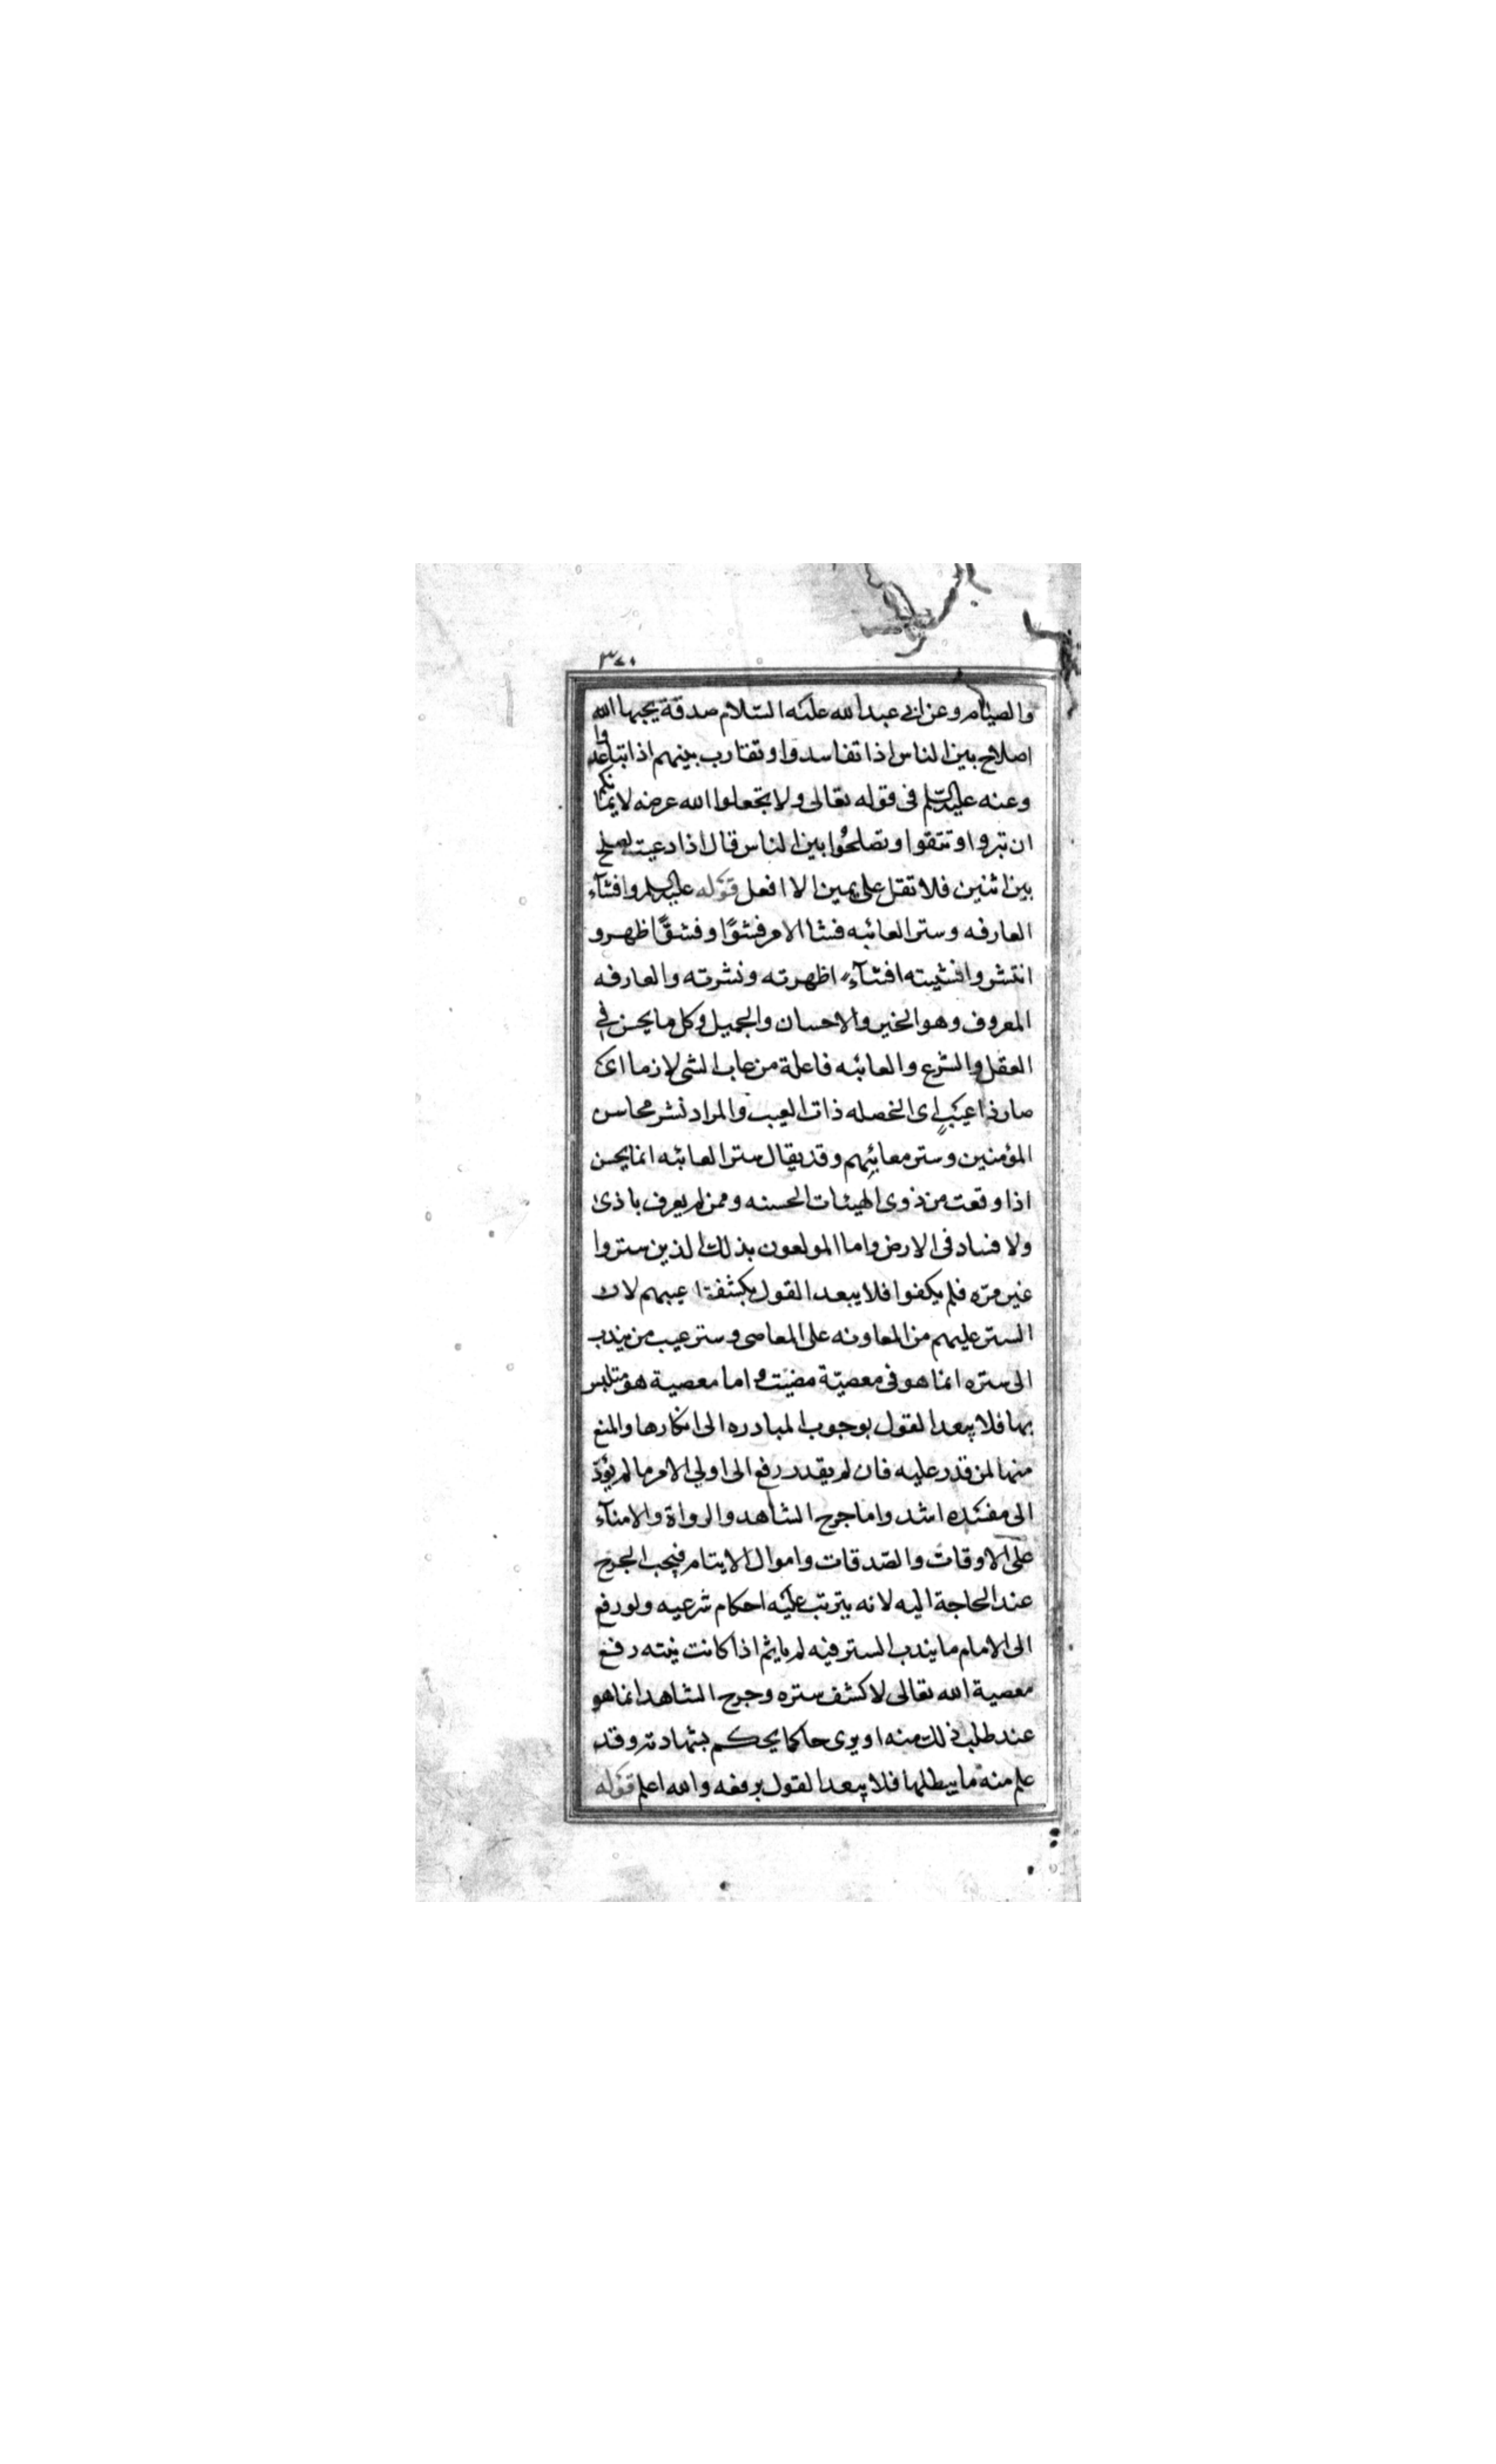 ٣٧٠
والصيام وعن ابي عبد الله عليه السلام صدقة يحبها الله
اصلاح بين الناس اذا تفاسدوا وتقارب بينهم اذا تباعدوا
وعنه عليه السلم في قوله تعالى ولا تجعلوا الله عرضه لايمانكم
ان تبروا وتتقوا وتصلحوا بين الناس قال اذا دعيت لصلح
بين اثنين فلا تقل على يمين الا افعل قوله عليه السلم وافشآء
العارفه وستر العائبه فشا الامر فشوًا وفشوًّا ظهر و
انتشر وافشيته افشآء اظهرته ونشرته والعارفه
المعروف وهو الخير والاحسان والجميل وكل ما يحسن في
العقل والشرع والعائبه فاعلة من عاب الشي لازما اى
صار ذا عيب اى الخصله ذات العيب والمراد نشر محاسن
المؤمنين وستر معائبهم وقد يقال ستر العائبه انما يحسن
اذا وقعت من ذوى الهيئات الحسنه وممن لم يعرف باذى
ولا فساد في الارض واما المولعون بذلك الذين ستروا
غير مره فلم يكفوا فلا يبعد القول بكشف عيبهم لان
الستر عليهم من المعاونه على المعاصى وستر عيب من يندب
الى ستره انما هو في معصية مضيت واما معصية هو متلبس
بها فلا يبعد القول بوجوب المبادره الى انكارها والمنع
منها لمن قدر عليه فان لم يقدر رفع الى اولي الامر ما لم يؤد
الى مفسده اشد واما جرح الشاهد والرواة والامنآء
على الاوقات والصدقات واموال الايتام فيجب الجرح
عند الحاجة اليه لانه يترتب عليه احكام شرعيه ولو رفع
الى الامام ما يندب الستر فيه لم ياثم اذا كانت نيته رفع
معصية الله تعالى لا كشف ستره وجرح الشاهد انما هو
عند طلب ذلك منه او يرى حاكما يحكم بشهادته وقد
علم منه ما يبطلها فلا يبعد القول برفعه والله اعلم قوله